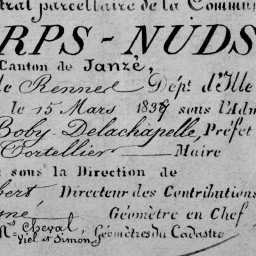 tral parcellaire de la Commun
ORPS-NUDS
Canton de Janzé,
de Rennes Dépt. d'Ille
le 15 Mars 1838 sous l'Adm
Boby Delachapelle, Préfet
Cortellier — Maire
e sous la Direction de
bert Directeur des Contributions
né Géomètre en Chef
Mrs. Cheval, Viel et Simon, Géomètres du Cadastre